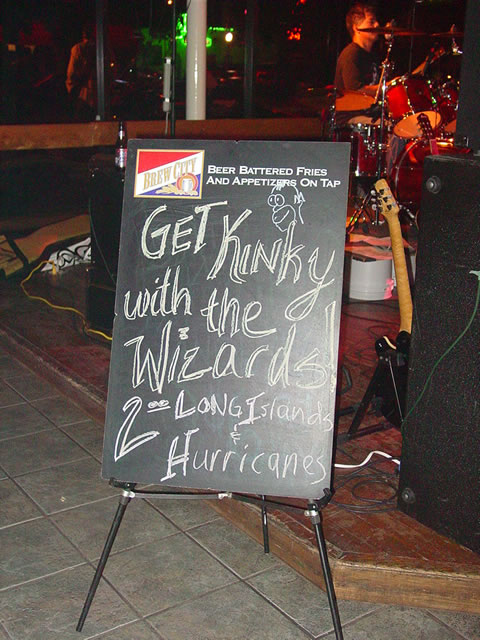 BREW CITY
BEER BATTERED FRIES
AND APPETIZERS ON TAP
GET KINKY
with the
Wizards!
2.00 LONG Islands
&
Hurricanes